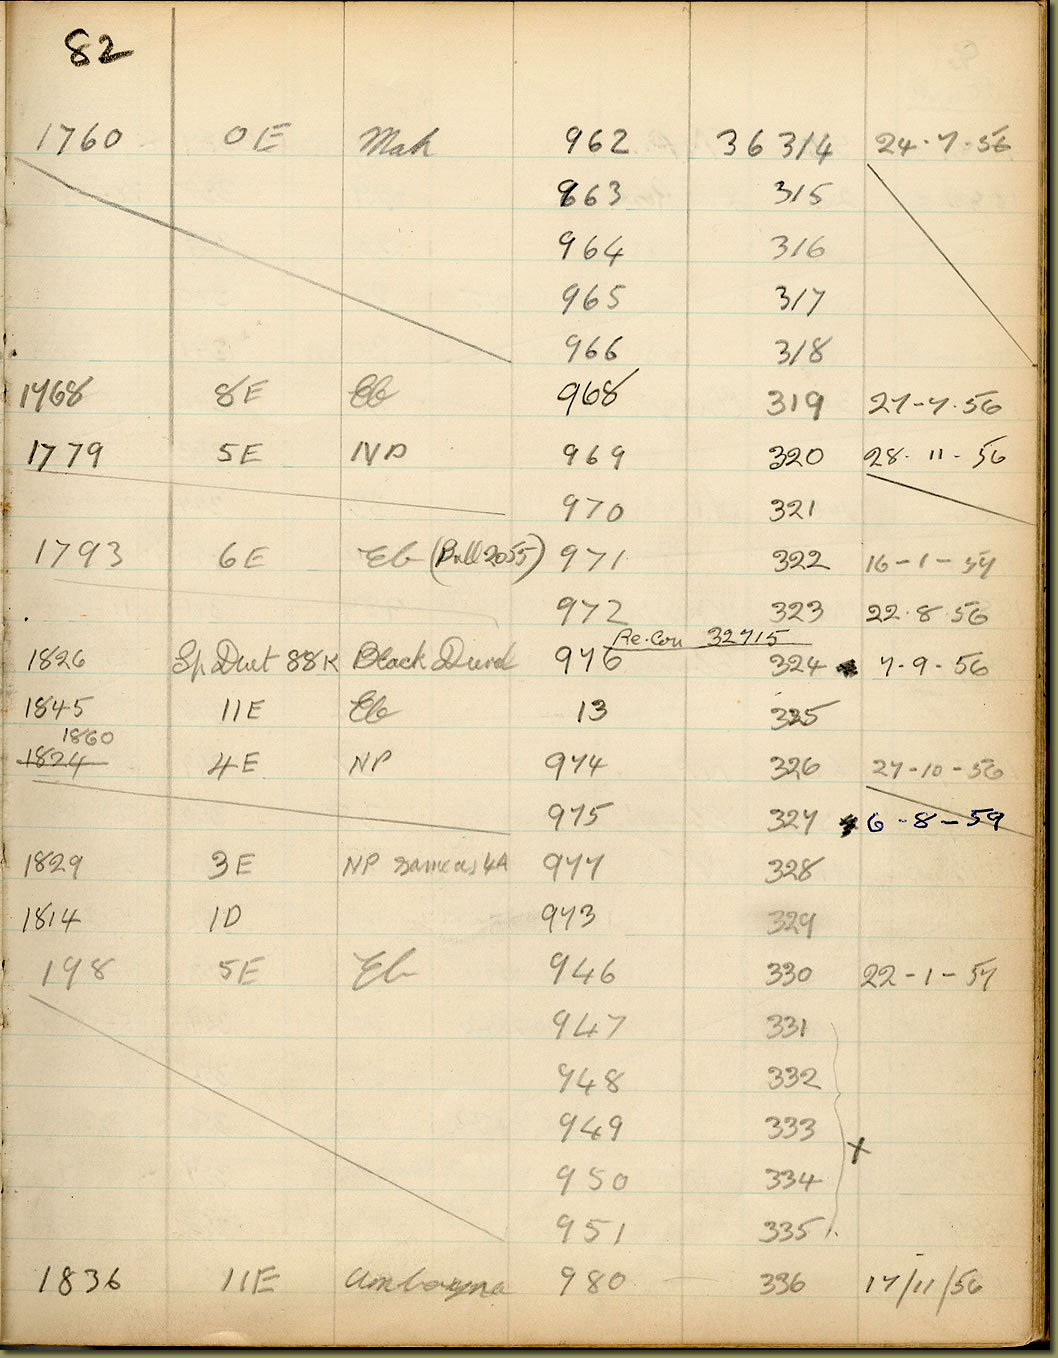 82
1760 0E Mah 962 36 314 24-7-56
963 315
964 316
965 317
966 318
1768 8E Eb 968 319 27-7-56
1779 5E NP 969 320 28-11-56
970 321
1793 6E Eb (Bull 2055) 971 322 16-1-57
972 323 22-8-56
Re-Con 32715
1826 Sp Duet 88K Black Dural 976 324 7-9-56
1845 11E Eb 13 325
1860
1824 4E NP 974 326 27-10-56
975 327 6-8-59
1829 3E NP Same as 4A 977 328
1814 1D 973 329
198 5E Eb 946 330 22-1-57
947 331
948 332
949 333
950 334
951 335
1836 11E Amboyna 980 336 17/11/56